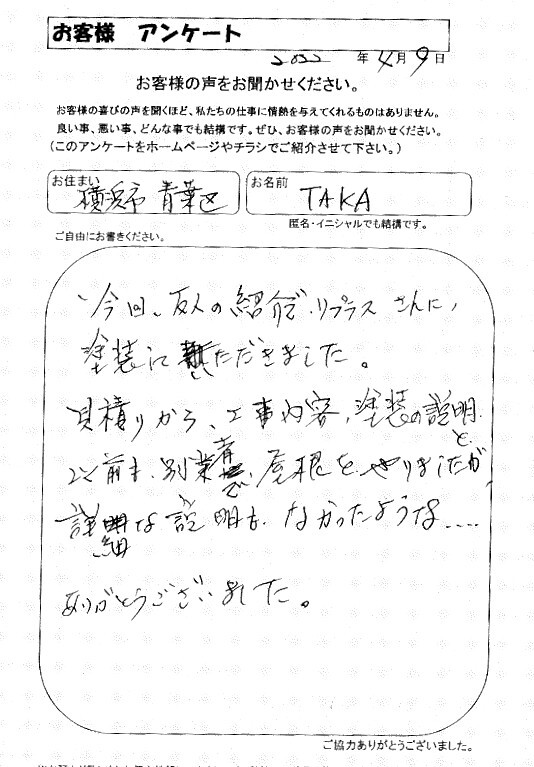 お客様 アンケート
2022 年 4月 9日
お客様の声をお聞かせください。
お客様の喜びの声を聞くほど、私たちの仕事に情熱を与えてくれるものはありません。
良い事、悪い事、どんな事でも結構です。ぜひ、お客様の声をお聞かせください。
(このアンケートをホームページやチラシでご紹介させて下さい。)
お住まい 横浜市 青葉区
お名前 TAKA
匿名・イニシャルでも結構です。
ご自由にお書きください。
今回、友人の紹介で、リプラスさんに、
塗装にいただきました。
見積りから、工事内容、塗装の説明と
以前も、別業者で、屋根を、やりましたが
詳細な説明も、なかったような....
ありがとうございました。
ご協力ありがとうございました。